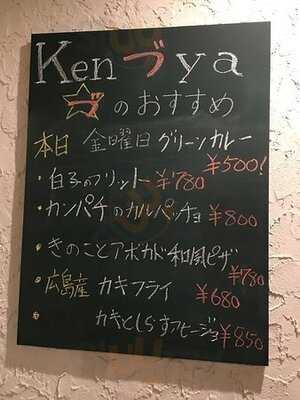 Kenづya
づのおすすめ
本日 金曜日 グリーンカレー
¥500!
・白子のフリット ¥780
・カンパチのカルパッチョ ¥800
・きのことアボカド和風ピザ
¥780
・広島産 カキフライ ¥680
・カキとしらすアヒージョ ¥850